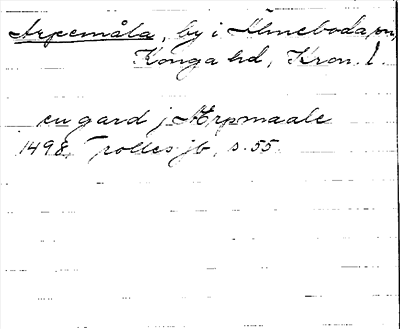 Arpemåla, by i Älmeboda sn,
Konga hd, Kron. l.
en gard j Ærpmaale
1498, Trolles jb, s. 55.